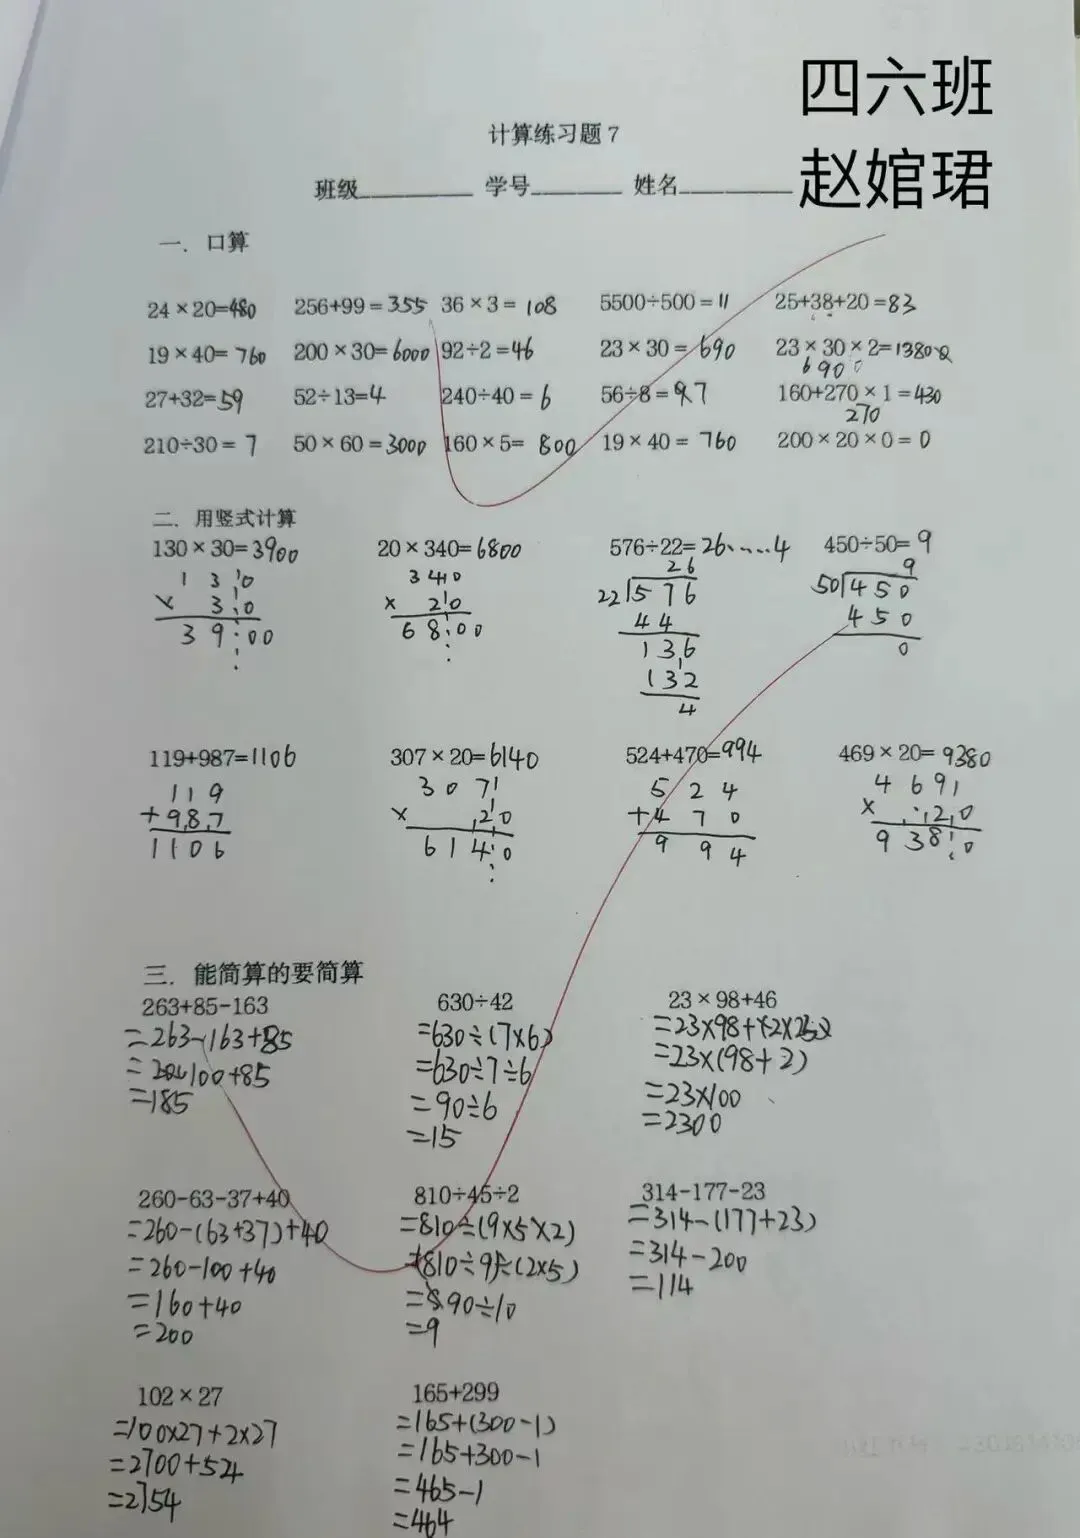 四六班
赵婠珺
计算练习题7
班级 学号 姓名
一. 口算
24×20=480 256+99=355 36×3=108 5500÷500=11 25+38+20=83
19×40=760 200×30=6000 92÷2=46 23×30=690 23×30×2=1380
690
27+32=59 52÷13=4 240÷40=6 56÷8=7 160+270×1=430
270
210÷30=7 50×60=3000 160×5=800 19×40=760 200×20×0=0
二. 用竖式计算
130×30=3900 20×340=6800 576÷22=26……4 450÷50=9
130 340 26 9
×30 ×20 22√576 50√450
3900 6800 44 450
136 0
132
4
119+987=1106 307×20=6140 524+470=994 469×20=9380
119 307 524 469
+987 ×20 +470 ×20
1106 6140 994 9380
三. 能简算的要简算
263+85-163 630÷42 23×98+46
=263-163+85 =630÷(7×6) =23×98+2×23
=100+85 =630÷7÷6 =23×(98+2)
=185 =90÷6 =23×100
=15 =2300
260-63-37+40 810÷45÷2 314-177-23
=260-(63+37)+40 =810÷(9×5×2) =314-(177+23)
=260-100+40 =(810÷9)÷(2×5) =314-200
=160+40 =90÷10 =114
=200 =9
102×27 165+299
=100×27+2×27 =165+(300-1)
=2700+54 =165+300-1
=2754 =465-1
=464